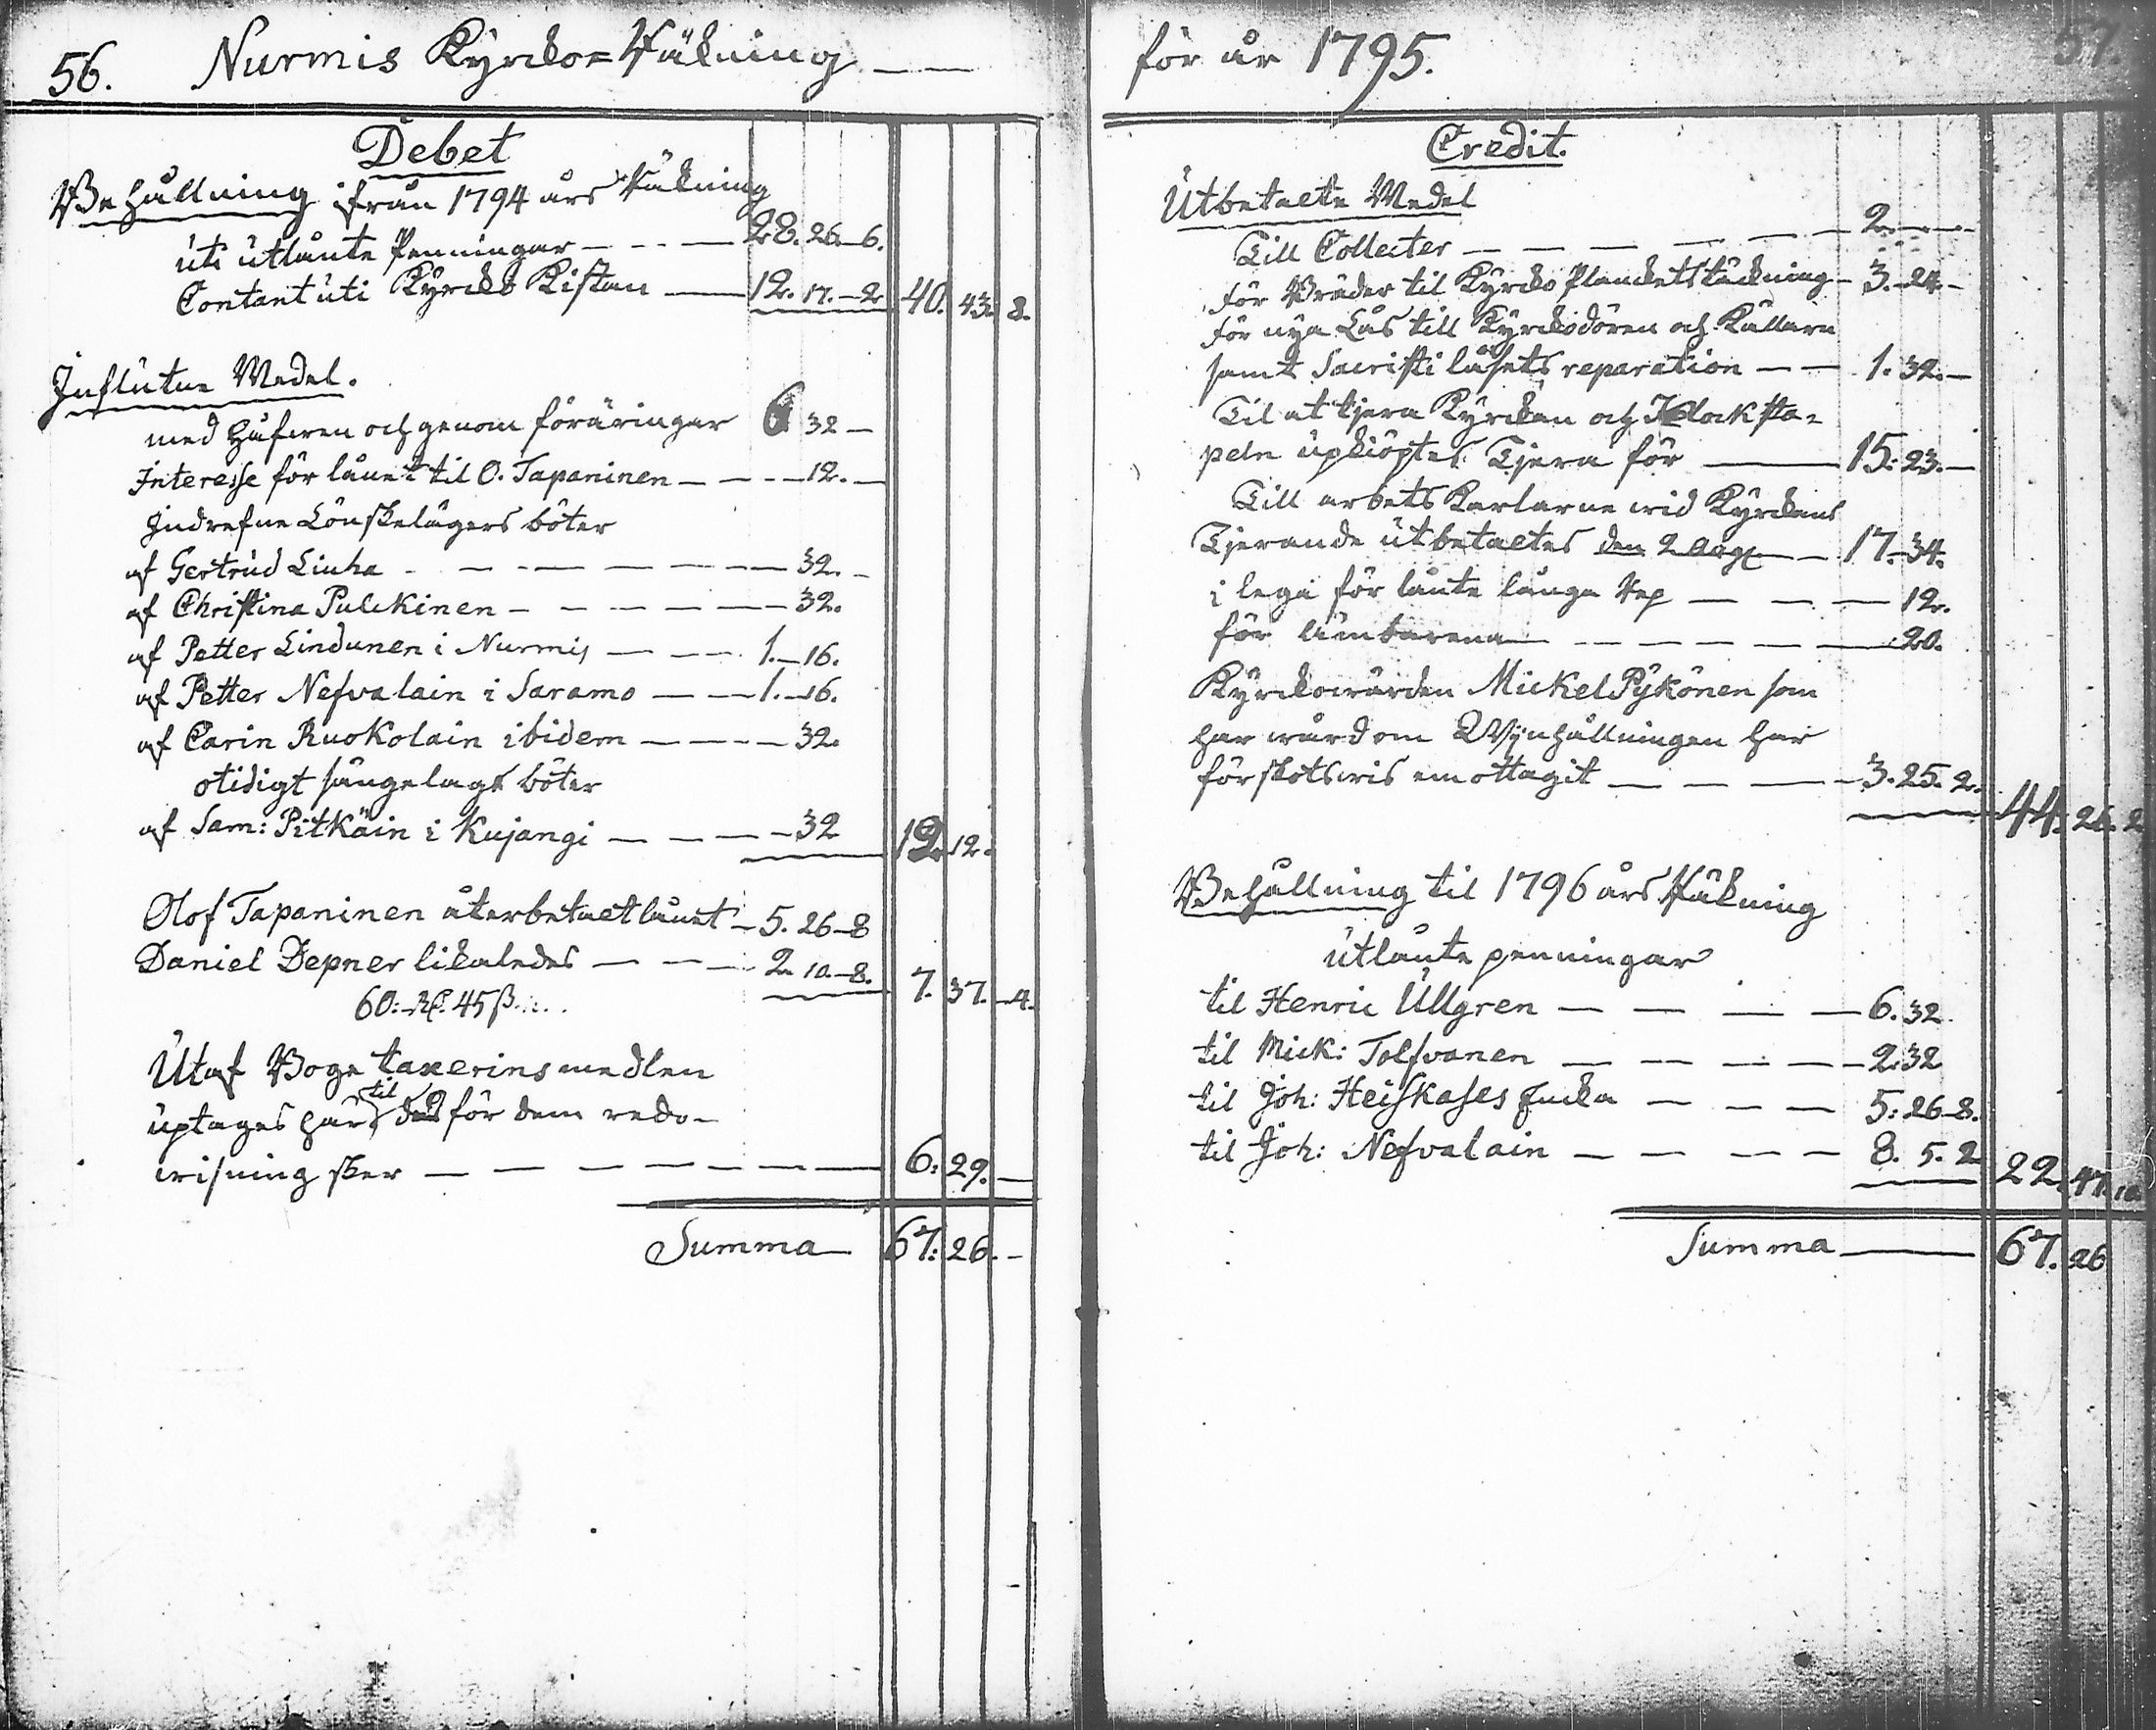 56. Nurmis Kyrcko=Räkning
Debet
Behållning ifrån 1794 års Räkning
uti utlånte Penningar 28. 26. 6.
Contant uti Kyrcko Kistan 12. 17. 2 40. 43. 8.
Influtne Medel.
med Håfwen och genom föräringar 6 32
Interesse för lånet til O. Tapaninen 12.
Indrefne Lönskelägers böter
af Gertrud Liuha 32.
af Christina Pulckinen 32.
af Petter Lindunen i Nurmis 1. 16.
af Petter Nefvalain i Saramo 1. 16.
af Carin Ruokolain ibidem 32.
otidigt sängelags böter
af Sam: Pitkäin i Kujangi 32 12. 12.
Olof Tapaninen återbetaet lånet 5. 26 8
Daniel Depner likaledes 2. 10 8. 7. 37. 4.
60: Rd. 45 ß.
Utaf Boge taxerings medlen
til
uptages här des för dem redo-
wisning sker 6: 29.
Summa 67: 26.
för år 1795. 57.
Credit.
Utbetaete Medel
Till Collecter 2.
För Bräder til Kyrcko Planckets täckning 3. 24.
För nya Lås till Kyrckodören och Källarn
samt Sacristi låsets reparation 1. 32.
Til at tjera Kyrckan och Klocksta=
peln upkiöptes Tjera för 15: 23.
Till arbets Karlarne wid Kyrckans
Tjerande utbetaetes den 2 Aug 17. 34.
i lega för lånte långa Rep 12.
för ämbarena 20.
Kyrckowärden Mickel Pykönen som
har wård om Wijnhållningen har
förskotswis emottagit 3. 25. 2. 44. 26. 2
Behållning til 1796 års Räkning
utlånte penningar
til Henric Ullgren 6. 32.
til Mick: Tolfvanen 2. 32
til Joh: Heiskases Encka 5: 26. 8.
til Joh: Nefvalain 8. 5. 2 22. 47. 10
Summa 67. 26